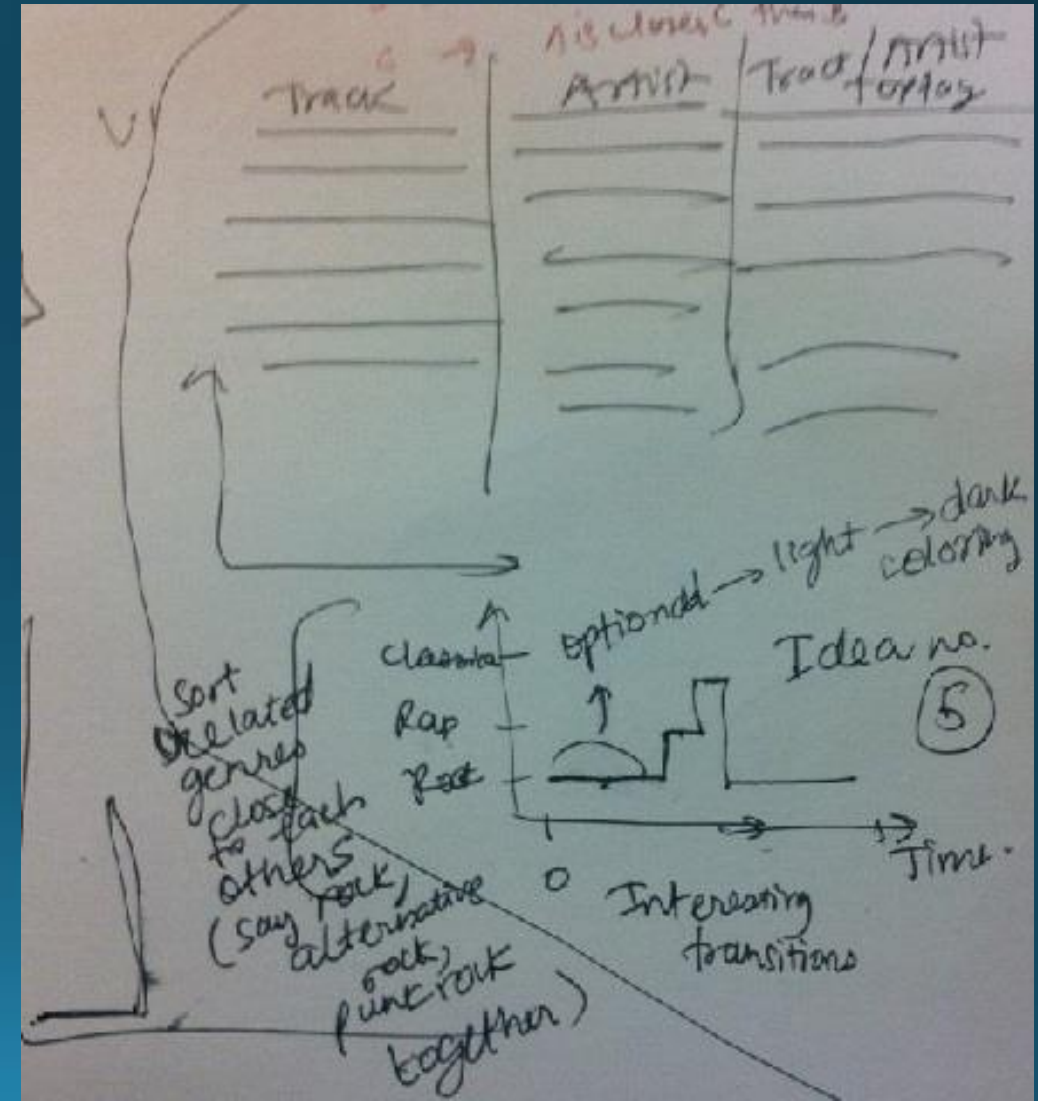 A is closer C than B
Track
Artist
Track / Artist
to play
optional → light → dark
coloring
Classical
Rap
Rock
Idea no.
5
0
Time.
Interesting
transitions
sort
related
genres
close
to each
others
(say rock,
alternative
rock,
punk rock
together)